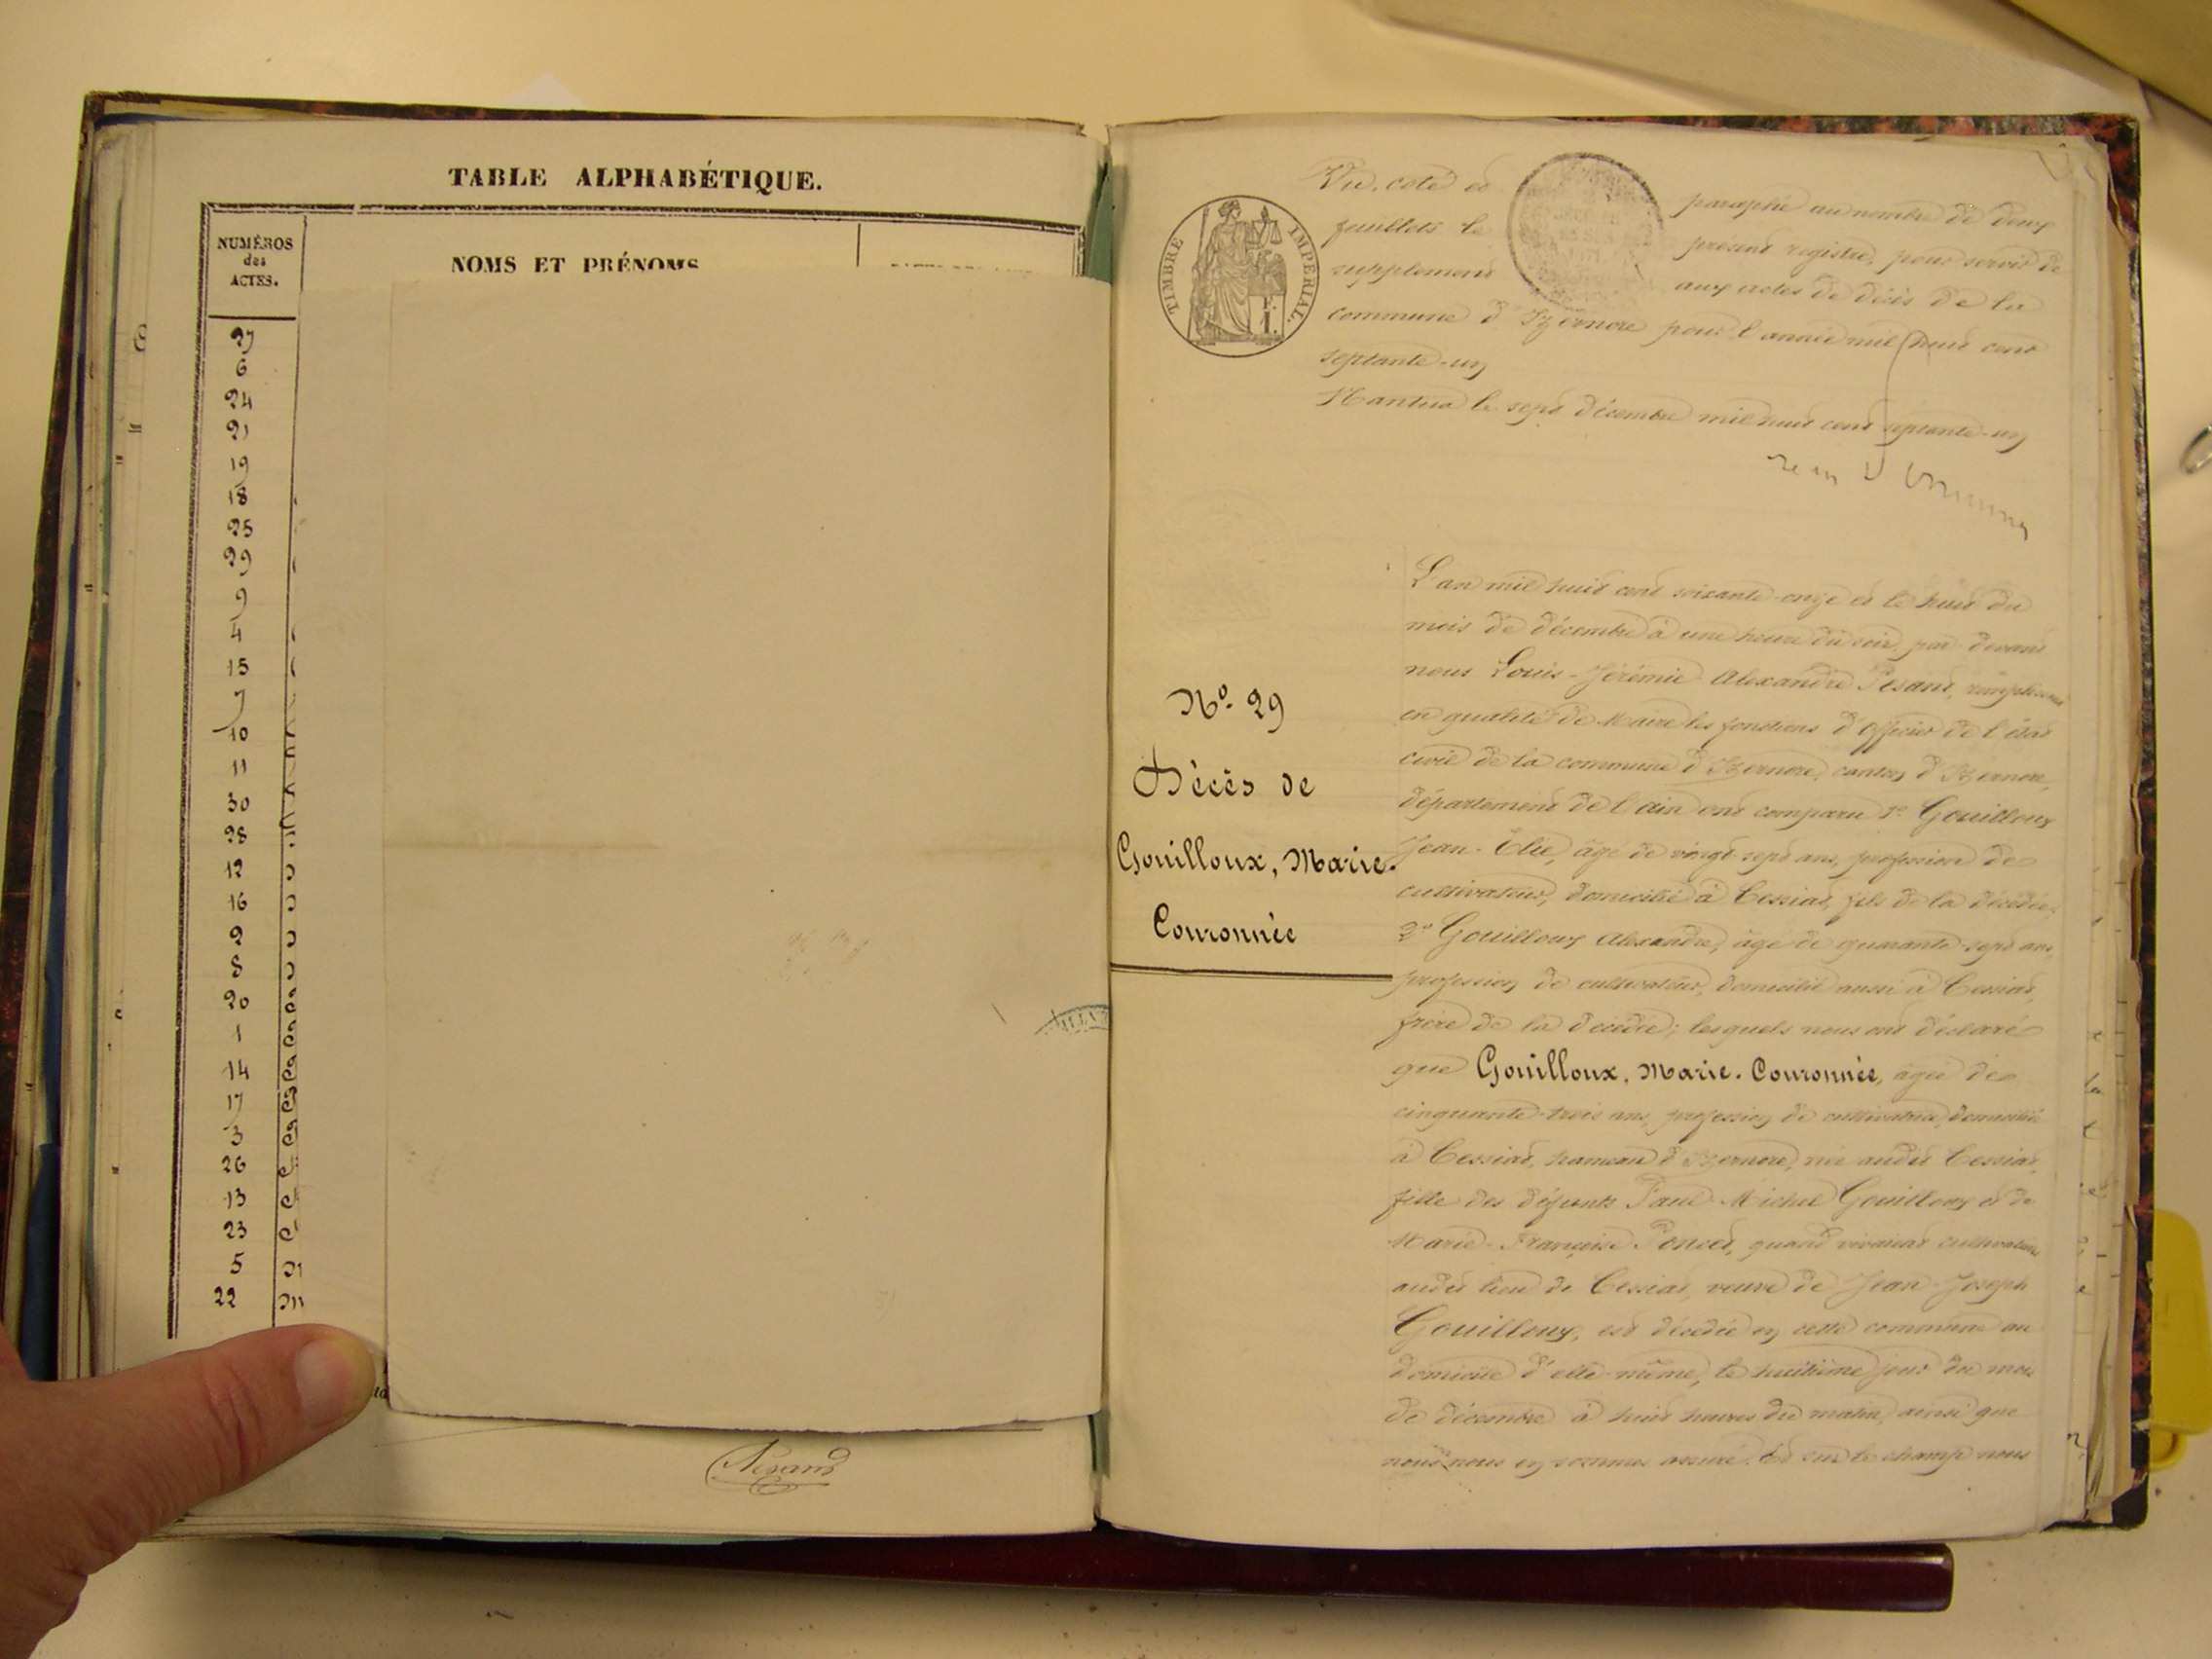 TABLE ALPHABÉTIQUE.
NUMÉROS
des
ACTES.
NOMS ET PRÉNOMS
27
6
24
21
19
18
25
29
9
4
15
7
10
11
30
28
12
16
2
8
20
1
14
17
3
26
13
23
5
22
TIMBRE IMPÉRIAL.
Vu, coté et paraphé au nombre de deux
feuillets le présent registre, pour servir de
supplément aux actes de décès de la
commune d'Izernore pour l'année mil huit cent
septante-un
Nantua le sept décembre mil huit cent septante-un
N° 29
Décès de
Gouilloux, Marie.
Couronnée
L'an mil huit cent soixante-onze et le huit du
mois de décembre à une heure du soir, par devant
nous Louis-Jérémie Alexandre remplissant
en qualité de Maire les fonctions d'officier de l'état
civil de la commune d'Izernore, canton d'Izernore,
département de l'ain ont comparu 1° Gouilloux
Jean-Élie, âgé de vingt-sept ans, profession de
cultivateur, domicilié à Cessiat, fils de la décédée;
2° Gouilloux Alexandre, âgé de quarante-sept ans,
profession de cultivateur, domicilié aussi à Cessiat,
frère de la décédée; lesquels nous ont déclaré
que Gouilloux, Marie. Couronnée, âgée de
cinquante-trois ans, profession de cultivatrice, domiciliée
à Cessiat, hameau d'Izernore, née audit Cessiat,
fille des défunts Paul-Michel Gouilloux et de
Marie-Françoise Poncet, quand vivaient cultivateurs
audit lieu de Cessiat, veuve de Jean-Joseph
Gouilloux, est décédée en cette commune au
domicile d'elle-même, le huitième jour du mois
de décembre à huit heures du matin, ainsi que
nous nous en sommes assuré. Et sur le champ nous